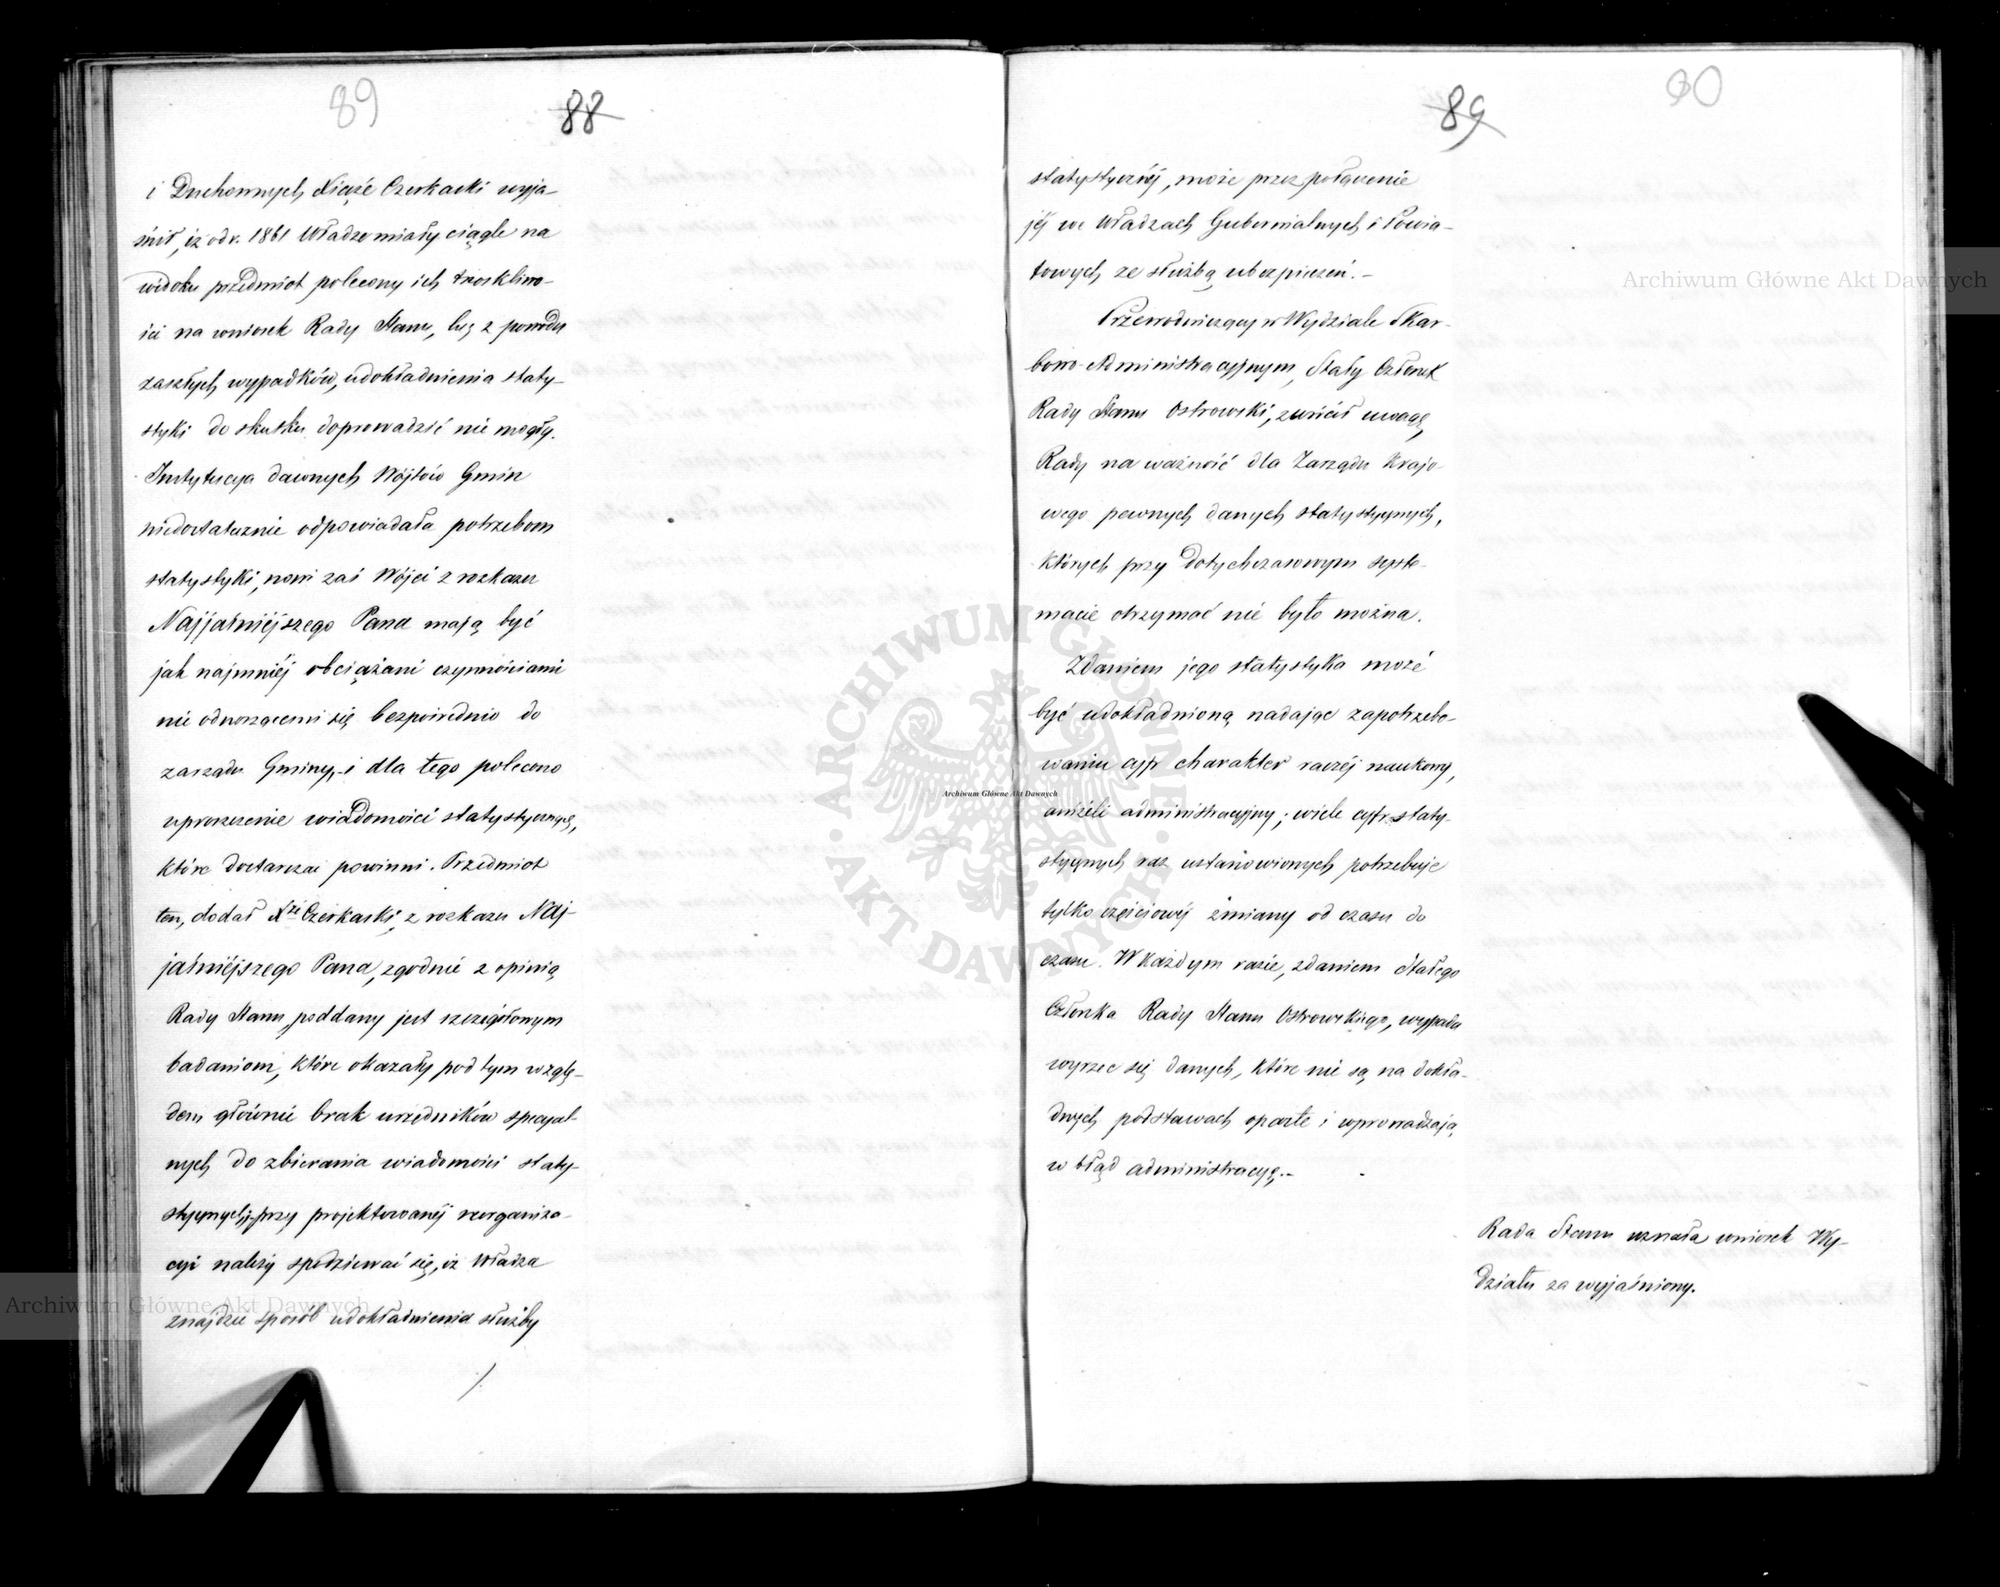 89
88
i Duchownych Xiąże Czerkaski wyja-
śnił, iż od r. 1861 Władze miały ciągle na
widoku przedmiot polecony ich troskliwo-
ści na wniosek Rady Stanu, lecz z powodu
zaszłych wypadków, udokładnienia staty-
styki do skutku doprowadzić nie mogły.
Instytucya dawnych Wójtów Gmin
niedostatecznie odpowiadała potrzebom
statystyki, nowi zaś Wójci z rozkazu
Najjaśniejszego Pana mają być
jak najmniéj obciążani czynnościami
nie odnoszącemi się bezpośrednio do
zarządu Gminy, i dla tego polecono
uproszczenie wiadomości statystycznych,
które dostarczać powinni. Przedmiot
ten, dodał Xże Czerkaski, z rozkazu Naj-
jaśniéjszego Pana, zgodnie z opinią
Rady Stanu poddany jest szczegółowym
badaniom, które okazały pod tym wzglę-
dem głównie brak urzędników specyal-
nych do zbierania wiadomości staty-
stycznych; przy projektowanéj reorganiza-
cyi należy spodziewać się, iż Władza
znajdzie sposób udokładnienia służby
/.
89
90
statystycznéj, może przez połączenie
jéj we Władzach Gubernialnych i Powia-
towych ze służbą ubezpieczeń.-
Przewodniczący w Wydziale Skar-
bowo-Administracyjnym, Stały Członek
Rady Stanu Ostrowski, zwrócił uwagę
Rady na ważność dla Zarządu Krajo-
wego pewnych danych statystycznych,
których przy dotychczasowym syste-
macie otrzymać nie było można.
Zdaniem jego statystyka może
być udokładnioną nadając zapotrzebo-
waniu cyfr charakter raczéj naukowy,
aniżeli administracyjny; wiele cyfr staty-
stycznych raz ustanowionych potrzebuje
tylko częściowéj zmiany od czasu do
czasu. W każdym razie, zdaniem Stałego
Członka Rady Stanu Ostrowskiego, wypada
wyrzec się danych, które nie są na dokła-
dnych podstawach oparte i wprowadzają
w błąd administracyę.-
Rada Stanu uznała wniosek Wy-
działu za wyjaśniony.
Archiwum Główne Akt Dawnych
Archiwum Główne Akt Dawnych
Archiwum Główne Akt Dawnych
ARCHIWUM GŁÓWNE
AKT DAWNYCH